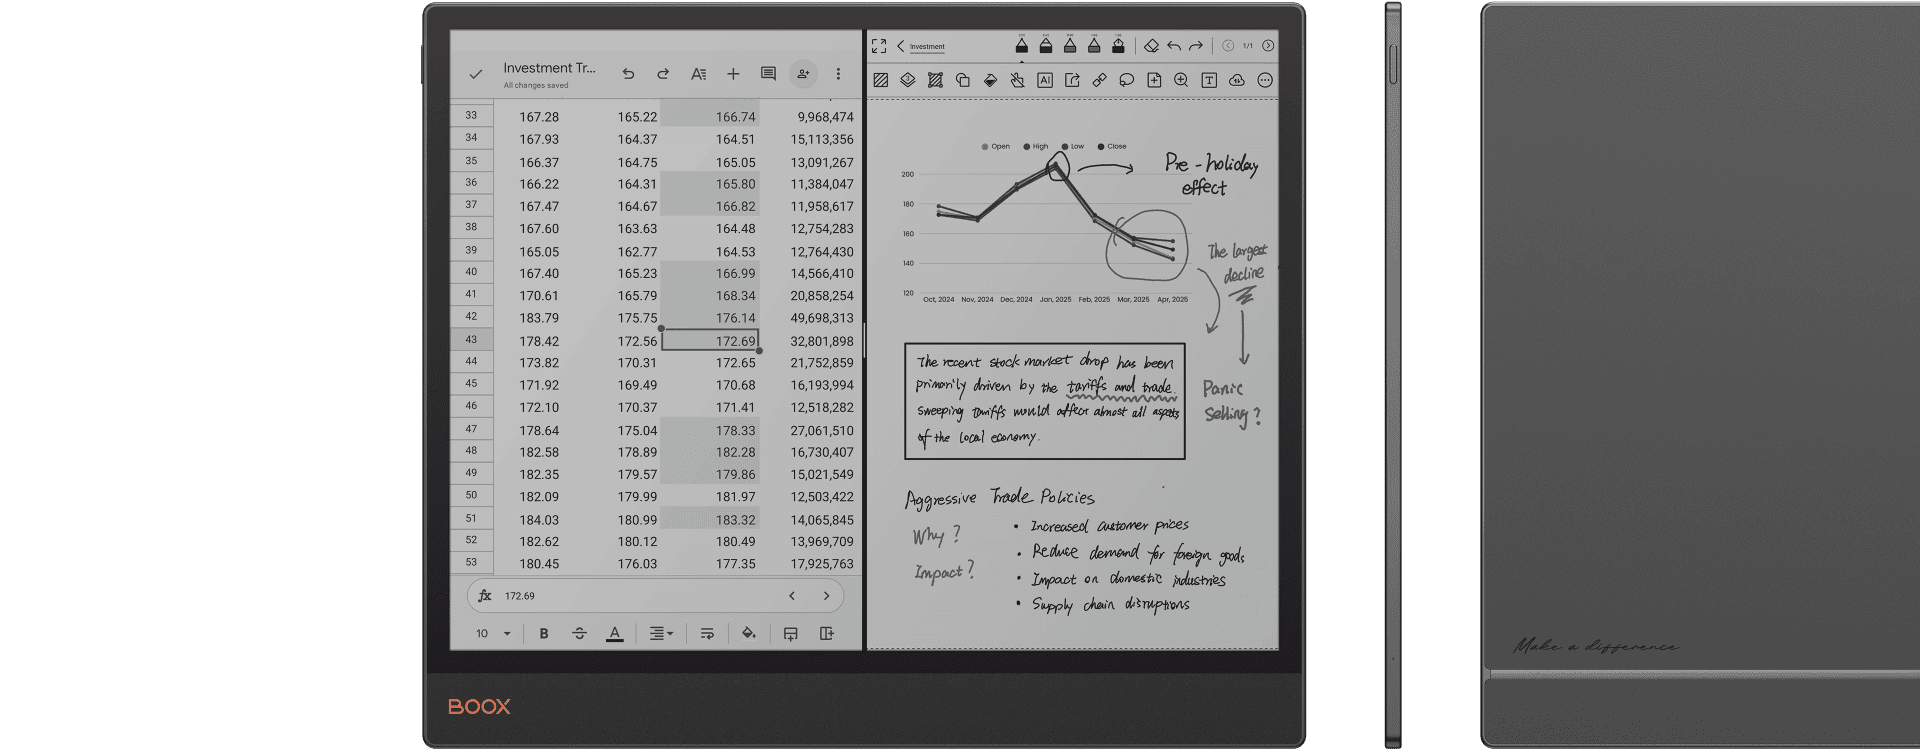 Investment Tr...
All changes saved
33 167.28 165.22 166.74 9,968,474
34 167.93 164.37 164.51 15,113,356
35 166.37 164.75 165.05 13,091,267
36 166.22 164.31 165.80 11,384,047
37 167.47 164.67 166.82 11,958,617
38 167.60 163.63 164.48 12,754,283
39 165.05 162.77 164.53 12,764,430
40 167.40 165.23 166.99 14,566,410
41 170.61 165.79 168.34 20,858,254
42 183.79 175.75 176.14 49,698,313
43 178.42 172.56 172.69 32,801,898
44 173.82 170.31 172.65 21,752,859
45 171.92 169.49 170.68 16,193,994
46 172.10 170.37 171.41 12,518,282
47 178.64 175.04 178.33 27,061,510
48 182.58 178.89 182.28 16,730,407
49 182.35 179.57 179.86 15,021,549
50 182.09 179.99 181.97 12,503,422
51 184.03 180.99 183.32 14,065,845
52 182.62 180.12 180.49 13,969,709
53 180.45 176.03 177.35 17,925,763
fx 172.69
10 B S A
Investment
1/1
AI T
Open High Low Close
200
180
160
140
120
Oct, 2024 Nov, 2024 Dec, 2024 Jan, 2025 Feb, 2025 Mar, 2025 Apr, 2025
Pre-holiday
effect
The largest
decline
Panic
Selling?
The recent stock market drop has been
primarily driven by the tariffs and trade
sweeping tariffs would affect almost all aspects
of the local economy.
Aggressive Trade Policies
Why?
Impact?
• Increased customer prices
• Reduce demand for foreign goods
• Impact on domestic industries
• Supply chain disruptions
BOOX
Make a difference